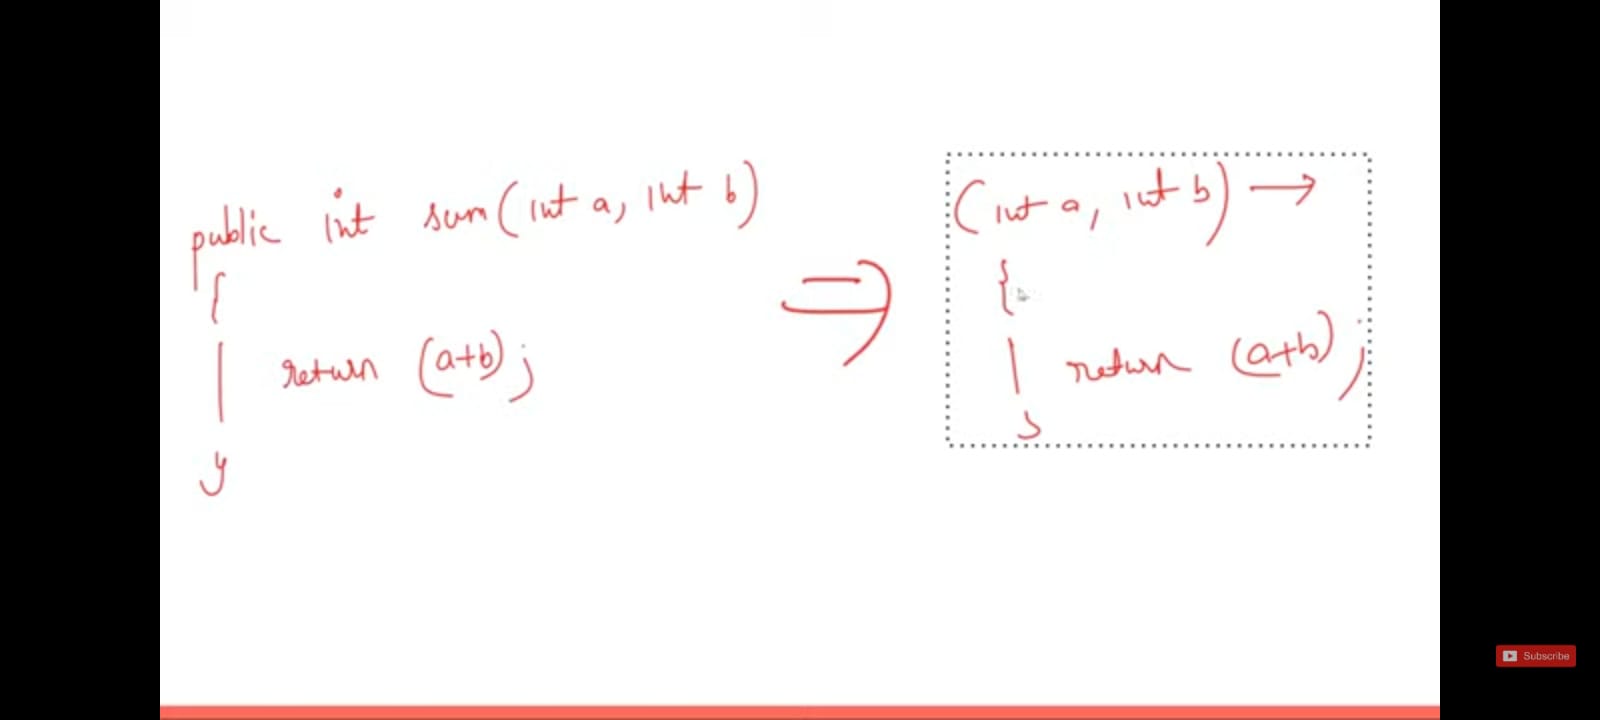 public int sum(int a, int b)
{
return (a+b);
}
⇒
(int a, int b) →
{
return (a+b);
}
Subscribe